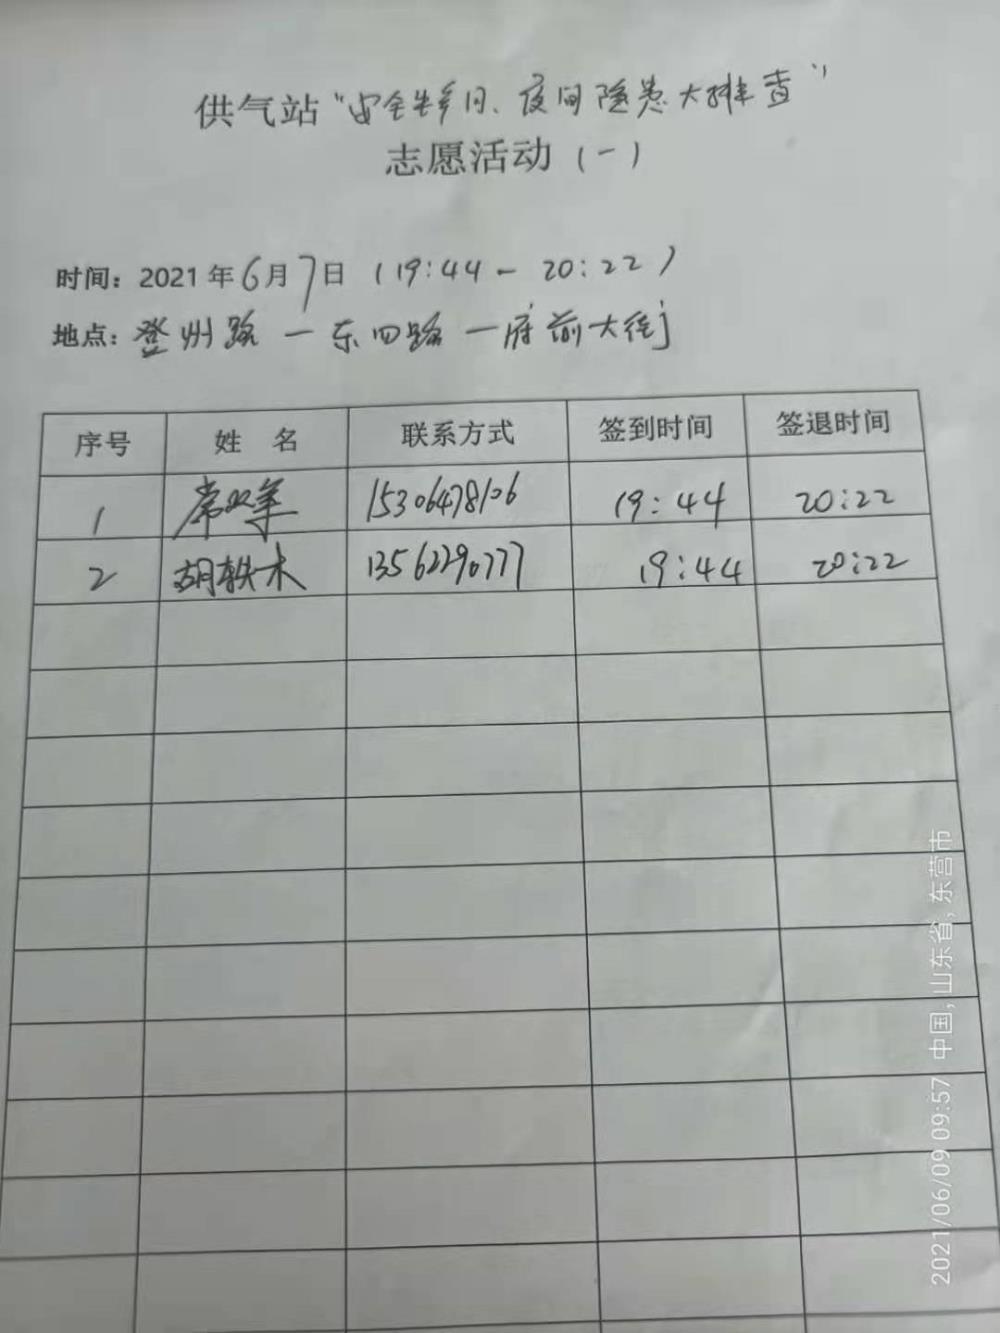 供气站“安全生产月、夜间隐患大排查”
志愿活动（一）
时间：2021年6月7日（19:44－20:22）
地点：登州路－东四路－府前大街
序号 姓名 联系方式 签到时间 签退时间
1 常双军 15306478106 19:44 20:22
2 胡轶木 13562290777 19:44 20:22
2021/06/09 09:57 中国,山东省,东营市